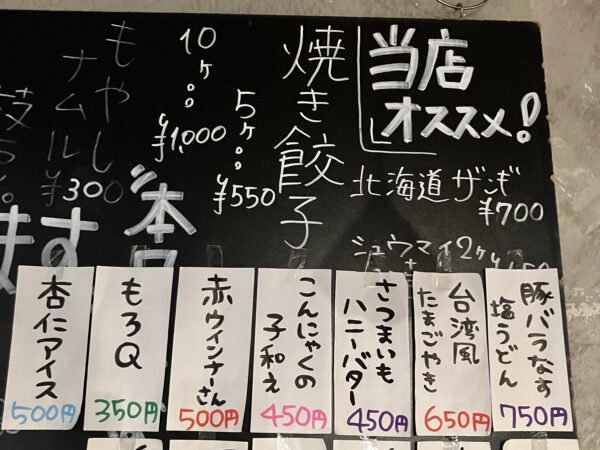 当店
オススメ!
北海道ザンギ
¥700
シュウマイ2ケ
焼き餃子
5ケ
¥550
10ケ
¥1,000
もやし
ナムル
¥300
本
ます
豚バラなす
塩うどん
750円
台湾風
たまごやき
650円
さつまいも
ハニーバター
450円
こんにゃくの
子和え
450円
赤ウインナーさん
500円
もろQ
350円
杏仁アイス
500円